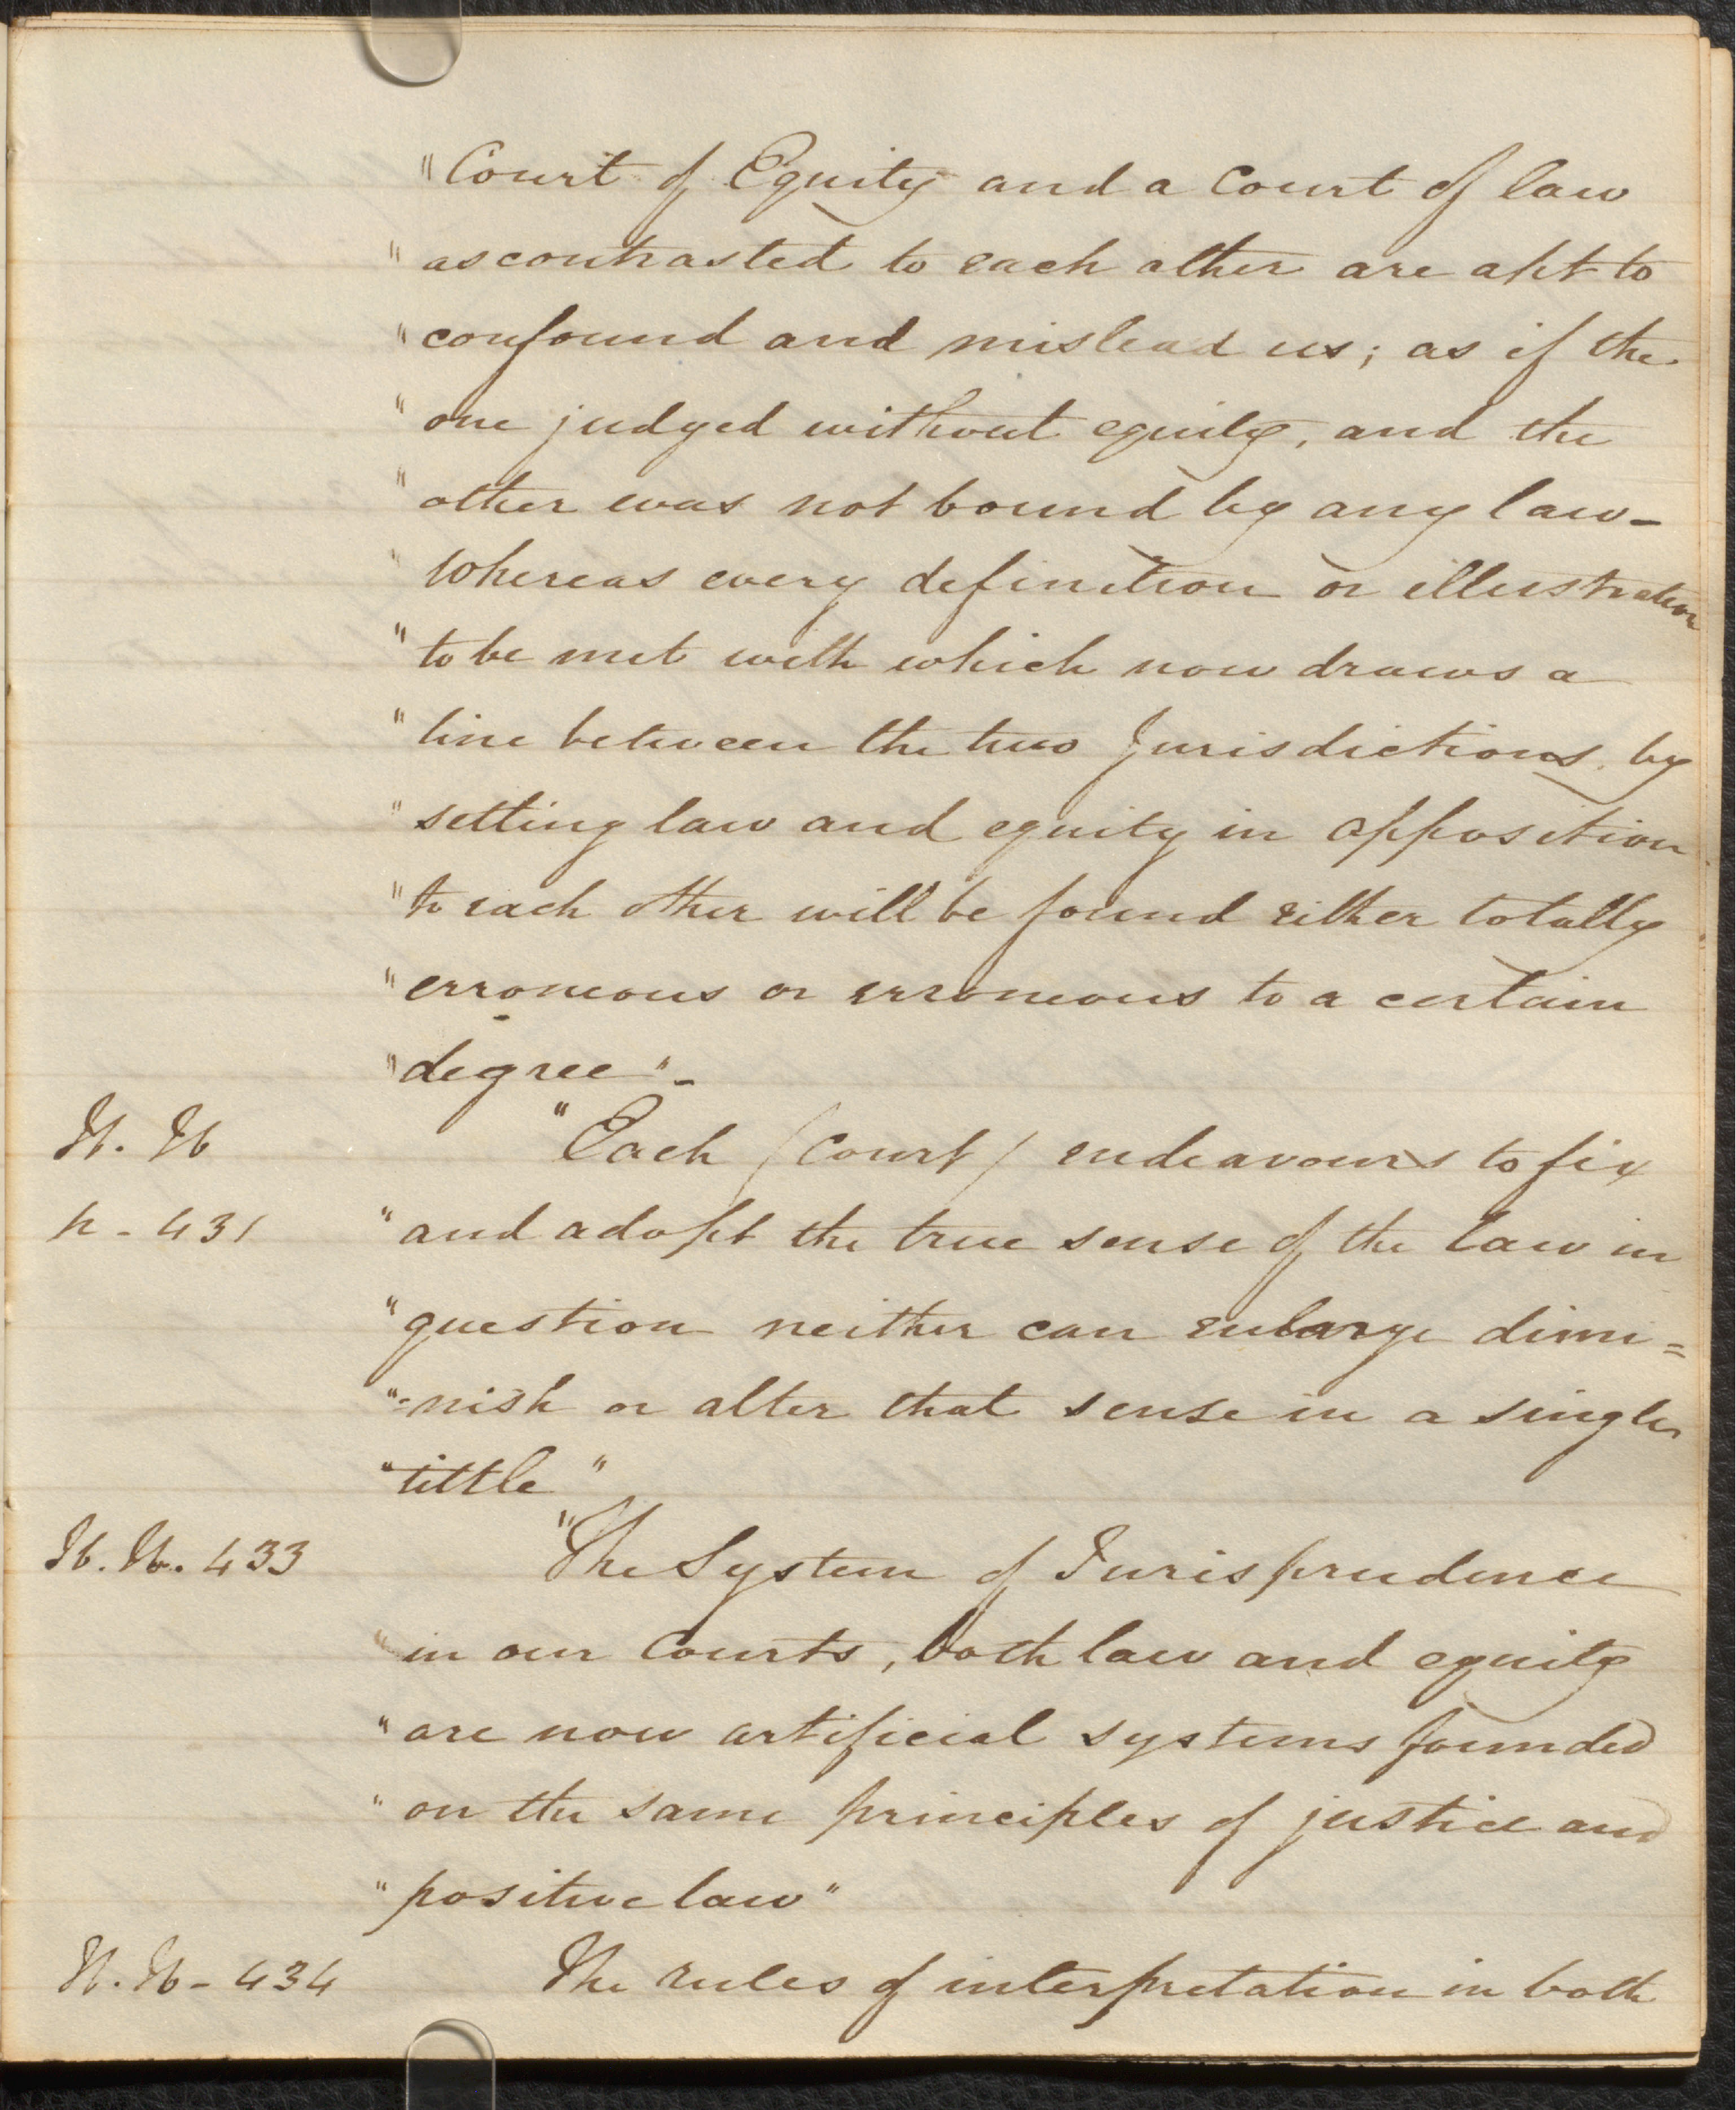 "Court of Equity and a Court of law
"as contrasted to each other are apt to
"confound and mislead us; as if the
"one judged without equity, and the
"other was not bound by any law-
"whereas every definition or illustration
"to be met with which now draws a
"line between the two Jurisdictions by
"setting law and equity in opposition
"to each other will be found either totally
"erroneous or erroneous to a certain
"degree"-
Ib. Ib
p - 431
"Each /Court/ endeavours to fix
"and adopt the true sense of the law in
"question neither can enlarge dimi=
"=nish or alter that sense in a single
"tittle"
Ib. Ib. 433
"The System of Jurisprudence
"in our Courts, both law and equity
"are now artificial systems founded
"on the same principles of justice and
"positive law"
Ib. Ib - 434
The rules of interpretation in both